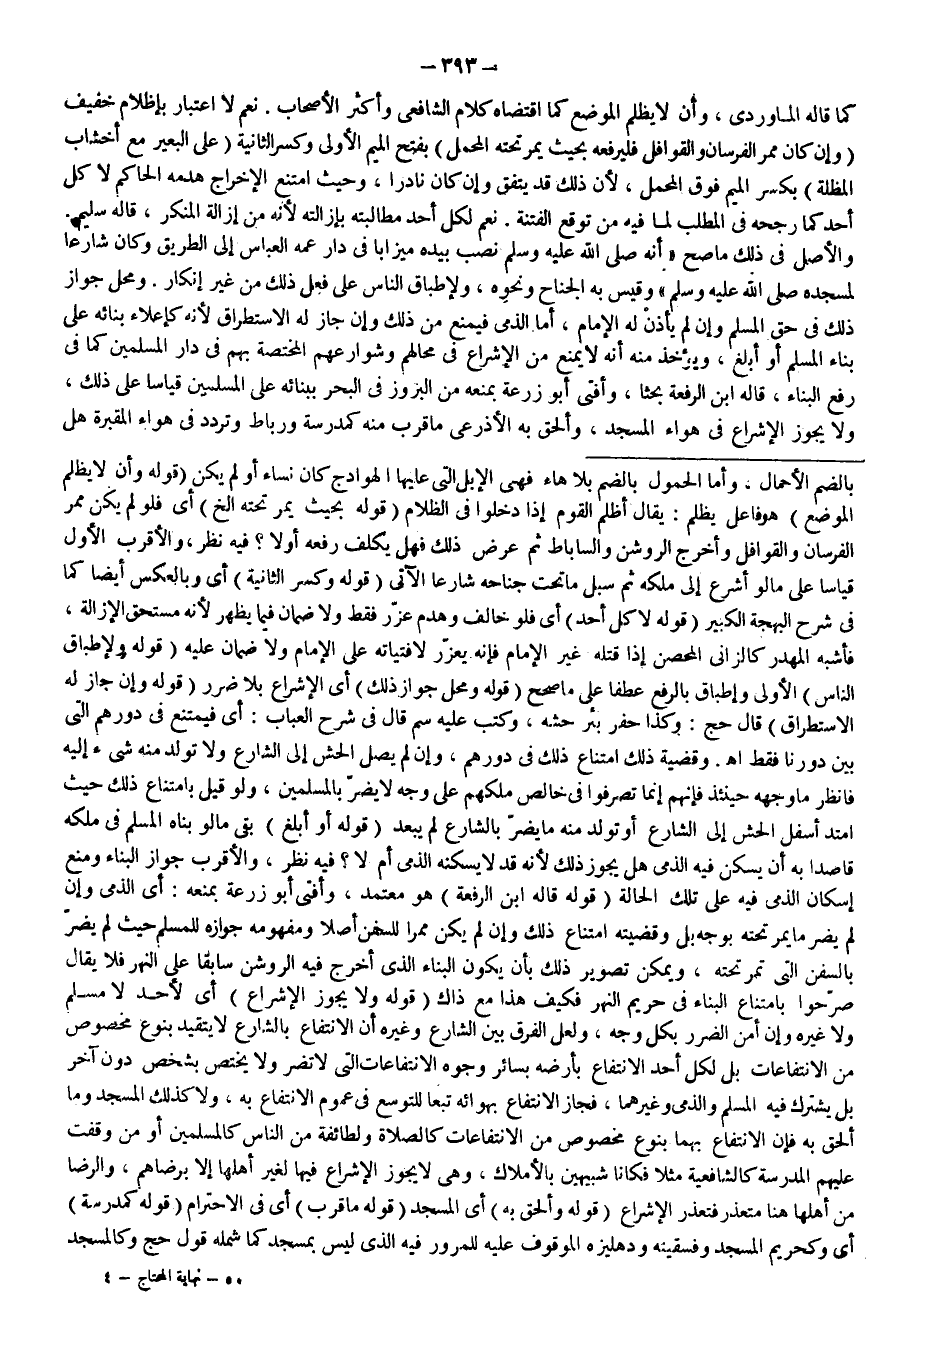 - ٣٩٣ -
كما قاله الماوردى ، وأن لايظلم الموضع كما اقتضاه كلام الشافعى وأكثر الأصحاب . نعم لا اعتبار بإظلام خفيف
( وإن كان ممر الفرسان والقوافل فليرفعه بحيث يمر تحته المحمل ) بفتح الميم الأولى وكسر الثانية ( على البعير مع أخشاب
المظلة ) بكسر الميم فوق المحمل ، لأن ذلك قد يتفق وإن كان نادرا ، وحيث امتنع الإخراج هدمه الحاكم لا كل
أحد كما رجحه فى المطلب لما فيه من توقع الفتنة . نعم لكل أحد مطالبته بإزالته لأنه من إزالة المنكر ، قاله سليم .
والأصل فى ذلك ماصح « أنه صلى الله عليه وسلم نصب بيده ميزابا فى دار عمه العباس إلى الطريق وكان شارعا
لمسجده صلى الله عليه وسلم » وقيس به الجناح ونحوه ، ولإطباق الناس على فعل ذلك من غير إنكار . ومحل جواز
ذلك فى حق المسلم وإن لم يأذن له الإمام ، أما الذمى فيمنع من ذلك وإن جاز له الاستطراق لأنه كإعلاء بنائه على
بناء المسلم أو أبلغ ، ويؤخذ منه أنه لايمنع من الإشراع فى محالهم وشوارعهم المختصة بهم فى دار المسلمين كما فى
رفع البناء ، قاله ابن الرفعة بحثا ، وأفتى أبو زرعة بمنعه من البروز فى البحر ببنائه على المسلمين قياسا على ذلك ،
ولا يجوز الإشراع فى هواء المسجد ، وألحق به الأذرعى ماقرب منه كمدرسة ورباط وتردد فى هواء المقبرة هل
بالضم الأحمال . وأما الحمول بالضم بلا هاء فهى الإبل التى عليها الهوادج كان نساء أو لم يكن (قوله وأن لايظلم
الموضع ) هو فاعل يظلم : يقال أظلم القوم إذا دخلوا فى الظلام ( قوله بحيث يمر تحته الخ ) أى فلو لم يكن ممر
الفرسان والقوافل وأخرج الروشن والساباط ثم عرض ذلك فهل يكلف رفعه أولا ؟ فيه نظر ، والأقرب الأول
قياسا على مالو أشرع إلى ملكه ثم سبل ماتحت جناحه شارعا الآتى ( قوله وكسر الثانية ) أى وبالعكس أيضا كما
فى شرح البهجة الكبير ( قوله لا كل أحد ) أى فلو خالف وهدم عزّر فقط ولا ضمان فيما يظهر لأنه مستحق الإزالة ،
فأشبه المهدر كالزانى المحصن إذا قتله غير الإمام فإنه يعزّر لافتياته على الإمام ولا ضمان عليه ( قوله ولإطباق
الناس ) الأولى وإطباق بالرفع عطفا على ماصح ( قوله ومحل جواز ذلك ) أى الإشراع بلا ضرر ( قوله وإن جاز له
الاستطراق ) قال حج : وكذا حفر بئر حشه ، وكتب عليه سم قال فى شرح العباب : أى فيمتنع فى دورهم التى
بين دورنا فقط اه . وقضية ذلك امتناع ذلك فى دورهم ، وإن لم يصل الحش إلى الشارع ولا تولد منه شىء إليه
فانظر ماوجهه حينئذ فإنهم إنما تصرفوا فى خالص ملكهم على وجه لايضرّ بالمسلمين ، ولو قيل بامتناع ذلك حيث
امتد أسفل الحش إلى الشارع أو تولد منه مايضرّ بالشارع لم يبعد ( قوله أو أبلغ ) بقى مالو بناه المسلم فى ملكه
قاصدا به أن يسكن فيه الذمى هل يجوز ذلك لأنه قد لا يسكنه الذمى أم لا ؟ فيه نظر ، والأقرب جواز البناء ومنع
إسكان الذمى فيه على تلك الحالة ( قوله قاله ابن الرفعة ) هو معتمد ، وأفتى أبو زرعة بمنعه : أى الذمى وإن
لم يضر مايمر تحته بوجه بل وقضيته امتناع ذلك وإن لم يكن ممرا للسفن أصلا ومفهومه جوازه للمسلم حيث لم يضرّ
بالسفن التى تمر تحته ، ويمكن تصوير ذلك بأن يكون البناء الذى أخرج فيه الروشن سابقا على النهر فلا يقال
صرّحوا بامتناع البناء فى حريم النهر فكيف هذا مع ذاك ( قوله ولا يجوز الإشراع ) أى لأحد لا مسلم
ولا غيره وإن أمن الضرر بكل وجه ، ولعل الفرق بين الشارع وغيره أن الانتفاع بالشارع لايتقيد بنوع مخصوص
من الانتفاعات بل لكل أحد الانتفاع بأرضه بسائر وجوه الانتفاعات التى لاتضر ولا يختص بشخص دون آخر
بل يشترك فيه المسلم والذمى وغيرهما ، فجاز الانتفاع بهوائه تبعا للتوسع فى عموم الانتفاع به ، ولا كذلك المسجد وما
ألحق به فإن الانتفاع بهما بنوع مخصوص من الانتفاعات كالصلاة ولطائفة من الناس كالمسلمين أو من وقفت
عليهم المدرسة كالشافعية مثلا فكانا شبيهين بالأملاك ، وهى لايجوز الإشراع فيها لغير أهلها إلا برضاهم ، والرضا
من أهلها هنا متعذر فتعذر الإشراع ( قوله وألحق به ) أى المسجد ( قوله ماقرب ) أى فى الاحترام ( قوله كمدرسة )
أى وكحريم المسجد وفسقيته ودهليزه الموقوف عليه للمرور فيه الذى ليس بمسجد كما شمله قول حج وكالمسجد
٥٠ - نهاية المحتاج - ٤